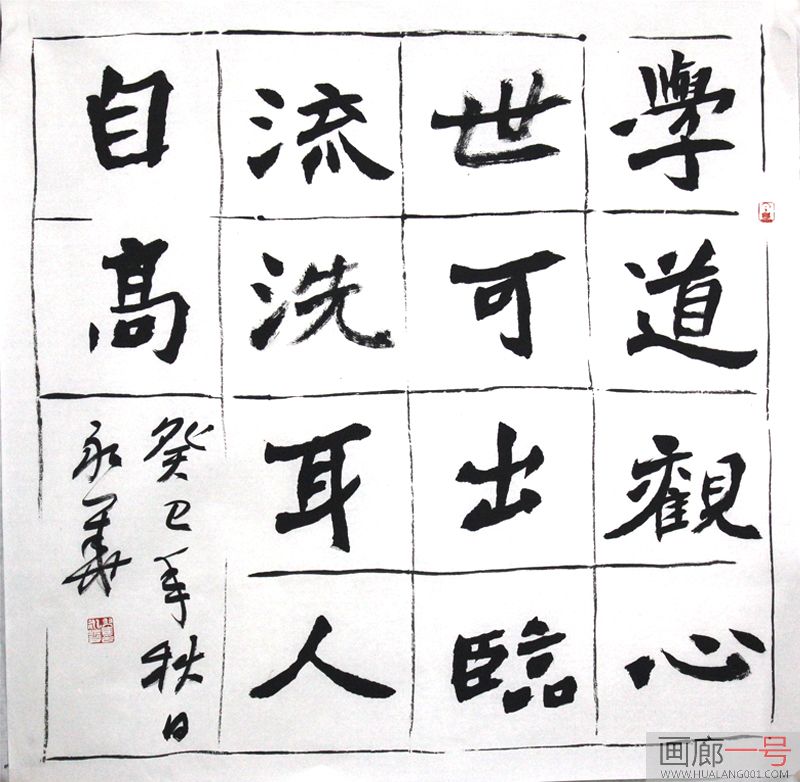 學道觀心
世可出臨
流洗耳人
自高
癸巳年秋日
永華
画廊一号
WWW.HUALANG001.COM